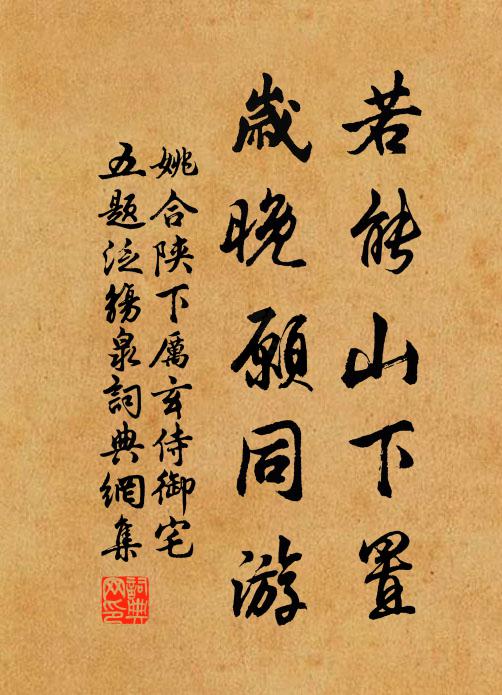 若能山下置
歲晚願同游
姚合陝下厲玄侍御宅
五題泛觴泉詞典網集
詞典网印